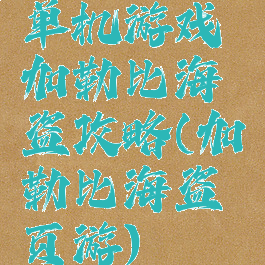 单机游戏
加勒比海
盗攻略(加
勒比海盗
页游)